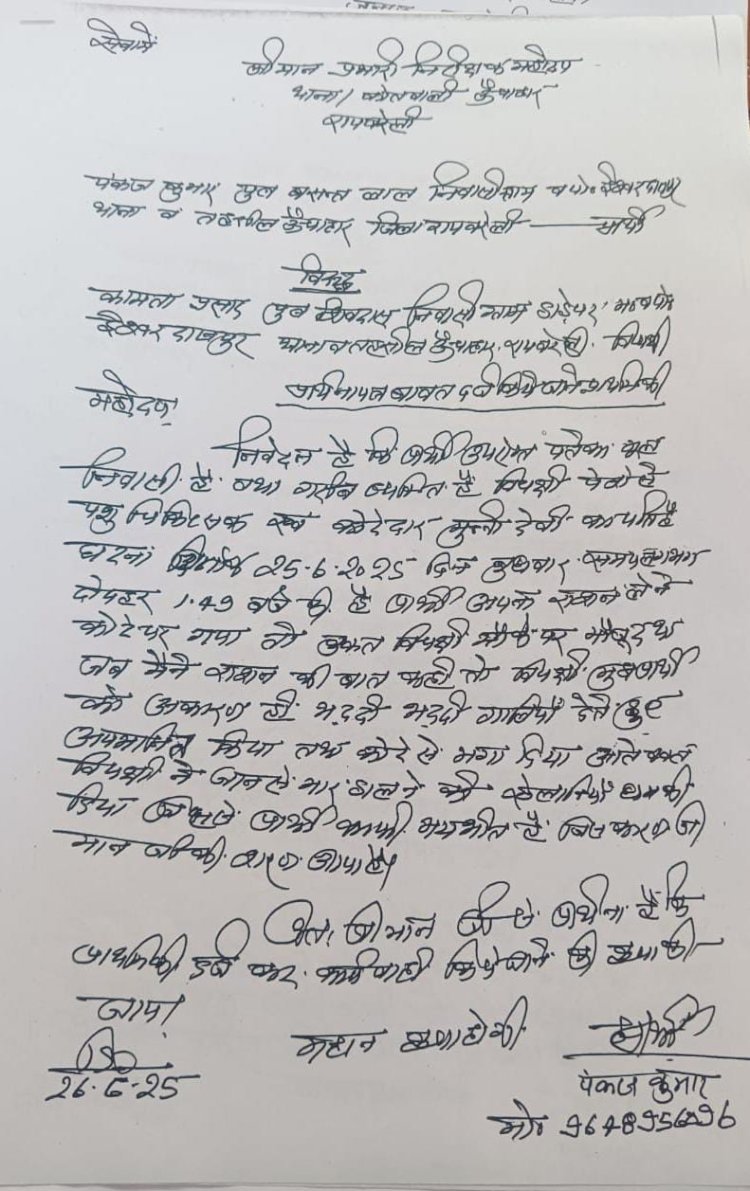 सेवामें
श्रीमान प्रभारी निरीक्षक महोदय
थाना/ कोतवाली ऊँचाहार
रायबरेली
पंकज कुमार पुत्र बसन्त लाल निवासी ग्राम व पो०
थाना व तहसील ऊँचाहार जिला रायबरेली — प्रार्थी
विरुद्ध
कामता प्रसाद पुत्र शिवदास निवासी ग्राम
थाना व तहसील ऊँचाहार, रायबरेली. विपक्षी
प्रार्थनापत्र बावत दर्ज किये जाने प्राथमिकी
महोदय,
निवेदन है कि प्रार्थी उपरोक्त पते का मूल
निवासी है तथा गरीब व्यक्ति है विपक्षी पेशे से
पशु चिकित्सक एवं कोटेदार मुन्नी देवी का पति है
घटना दिनांक 25.6.2025 दिन बुधवार समय लगभग
दोपहर 1.49 बजे की है प्रार्थी अपना राशन लेने
कोटे पर गया तो उक्त विपक्षी मौके पर मौजूद था
जब मैने राशन की बात कही तो विपक्षी मुझ प्रार्थी
को अकारण ही भद्दी भद्दी गालियाँ देते हुए
अपमानित किया तथा कोटे से भगा दिया
विपक्षी ने जान से मार डालने की धमकी
दिया जिससे प्रार्थी काफी भयभीत है जिस कारण श्री
मान जी की शरण आया है।
अतः श्रीमान जी से प्रार्थना है कि
प्राथमिकी दर्ज कर कार्यवाही किये जाने की कृपा की
जाय।
महान कृपा होगी
प्रार्थी
26.6.25
पंकज कुमार
मो०